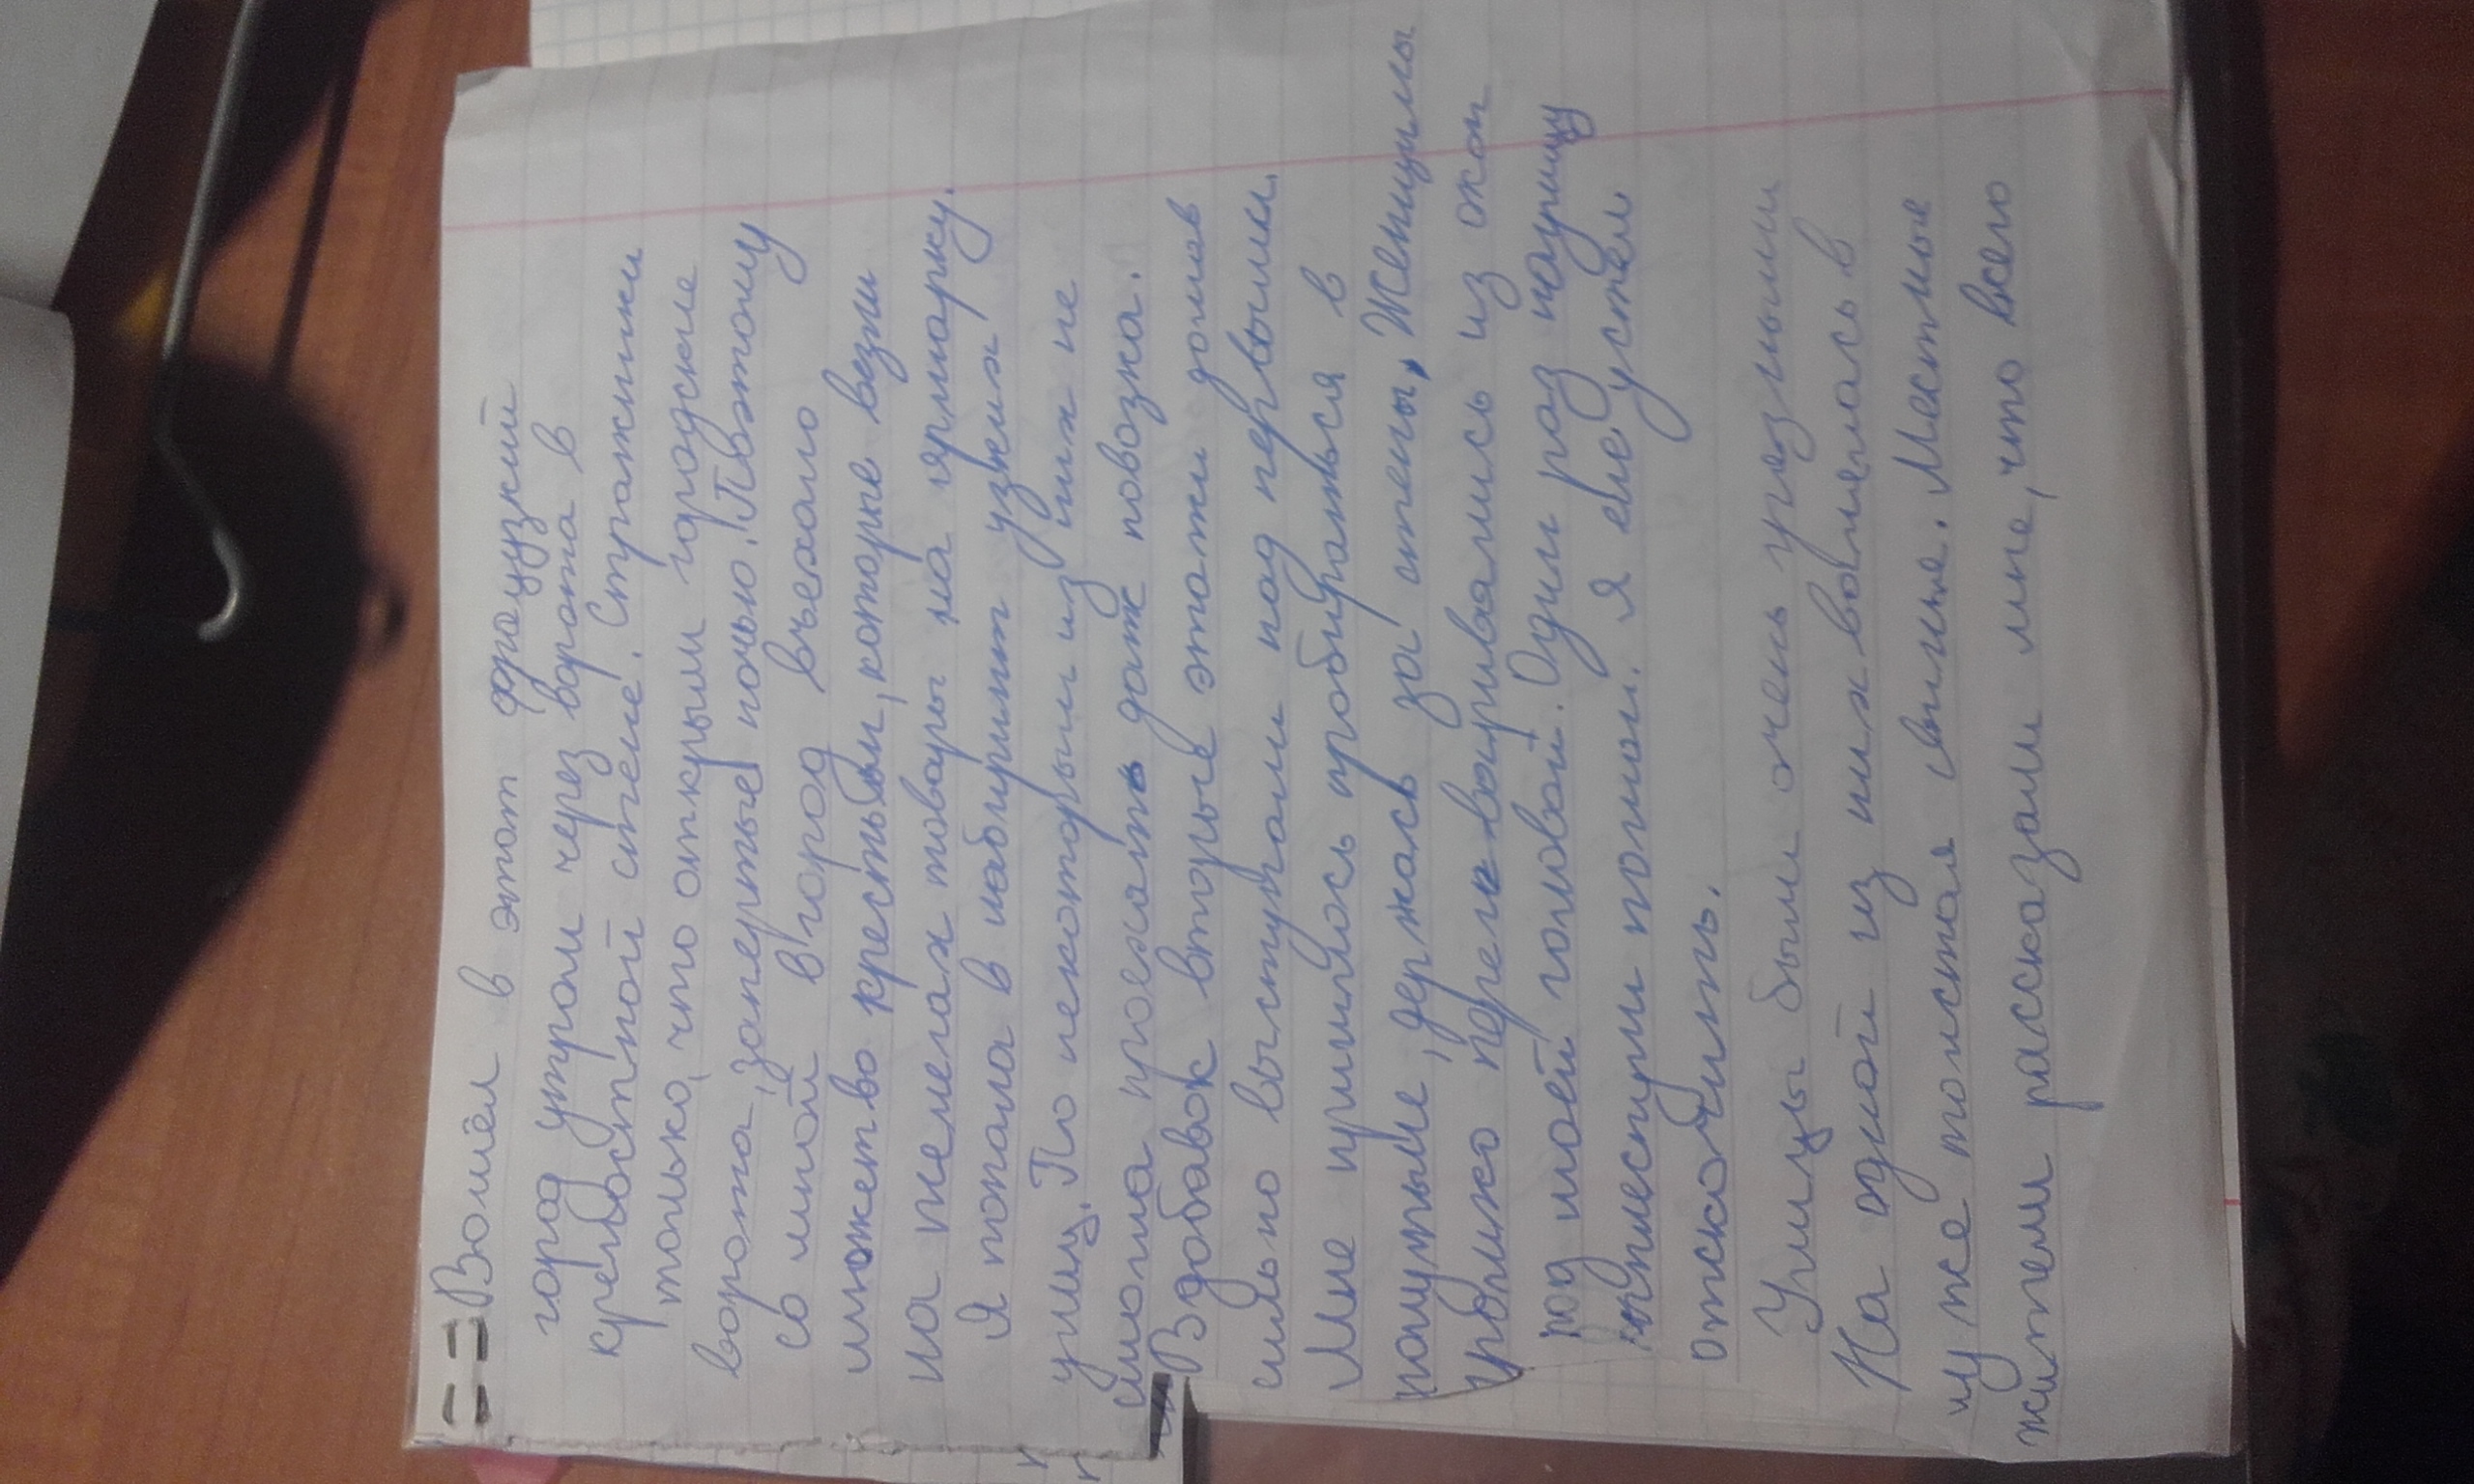 Вошёл в этот фрацузкий
город утром через ворота в
крепостной стене. Стражники
только, что открыли городские
ворота, запертые ночью. Поэтому
со мной в город въехало
множетво крестьян, которые везли
на телегах товары на ярмарку.
Я попала в лабиринт узких
улиц. По некоторым из них не
смогла проехать даж повозка.
Вдобавок вторые этажи домов
сильно выступали над первыми.
Мне пришлось пробираться в
полутьме, держась за стены, Женщины
громко переговаривались из окон
под моей головой. Один раз на улицу
помои. Я еле успел
отскочить.
Улицы были очень грязными
На одной из них валялась в
луже толстая свинья. Местные
жители рассказали мне, что всего